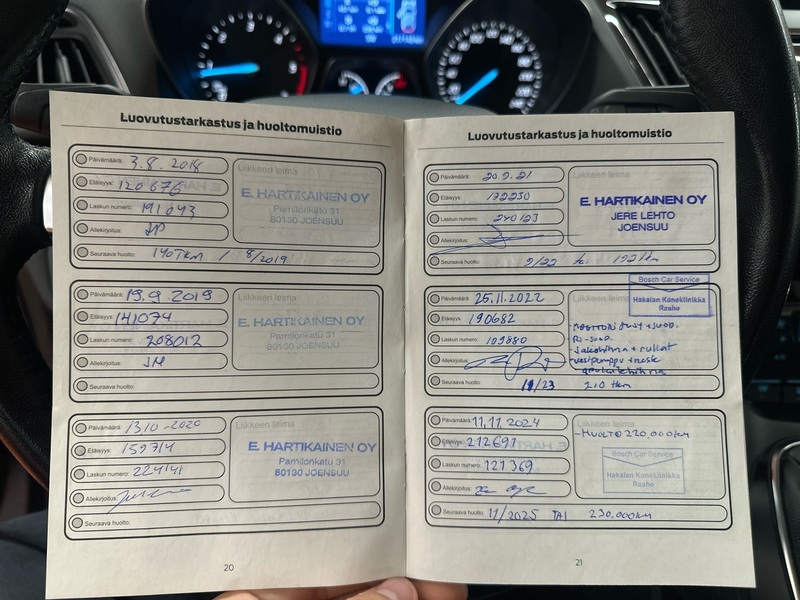 Luovutustarkastus ja huoltomuistio
Päivämäärä: 3.8.2018
Etäisyys: 120676
Laskun numero: 191043
Allekirjoitus: JP
Seuraava huolto: 140TKM / 8/2019
Liikkeen leima
E. HARTIKAINEN OY
Pamilonkatu 31
80130 JOENSUU
Päivämäärä: 19.9.2019
Etäisyys: 141074
Laskun numero: 208012
Allekirjoitus: JM
Seuraava huolto:
Liikkeen leima
E. HARTIKAINEN OY
Pamilonkatu 31
80130 JOENSUU
Päivämäärä: 13.10-2020
Etäisyys: 159714
Laskun numero: 224141
Allekirjoitus:
Seuraava huolto:
Liikkeen leima
E. HARTIKAINEN OY
Pamilonkatu 31
80130 JOENSUU
20
Luovutustarkastus ja huoltomuistio
Päivämäärä: 20.9.21
Etäisyys: 172230
Laskun numero: 240123
Allekirjoitus:
Seuraava huolto: 9/22
Liikkeen leima
E. HARTIKAINEN OY
JERE LEHTO
JOENSUU
Päivämäärä: 25.11.2022
Etäisyys: 190682
Laskun numero: 109880
Allekirjoitus:
Seuraava huolto: 11/23 210 tkm
Liikkeen leima
Bosch Car Service
Hakalan Koneklinikka
Raahe
MOOTTORI ÖLJY + SUOD.
RI-SUOD.
Jakohihna + rullat
vesipumppu + neste
apulaitehihna
Päivämäärä: 11.11.2024
Etäisyys: 212691
Laskun numero: 121369
Allekirjoitus:
Seuraava huolto: 11/2025 TAI 230.000KM
Liikkeen leima
-HUOLTO 220,000KM
Bosch Car Service
Hakalan Koneklinikka
Raahe
21